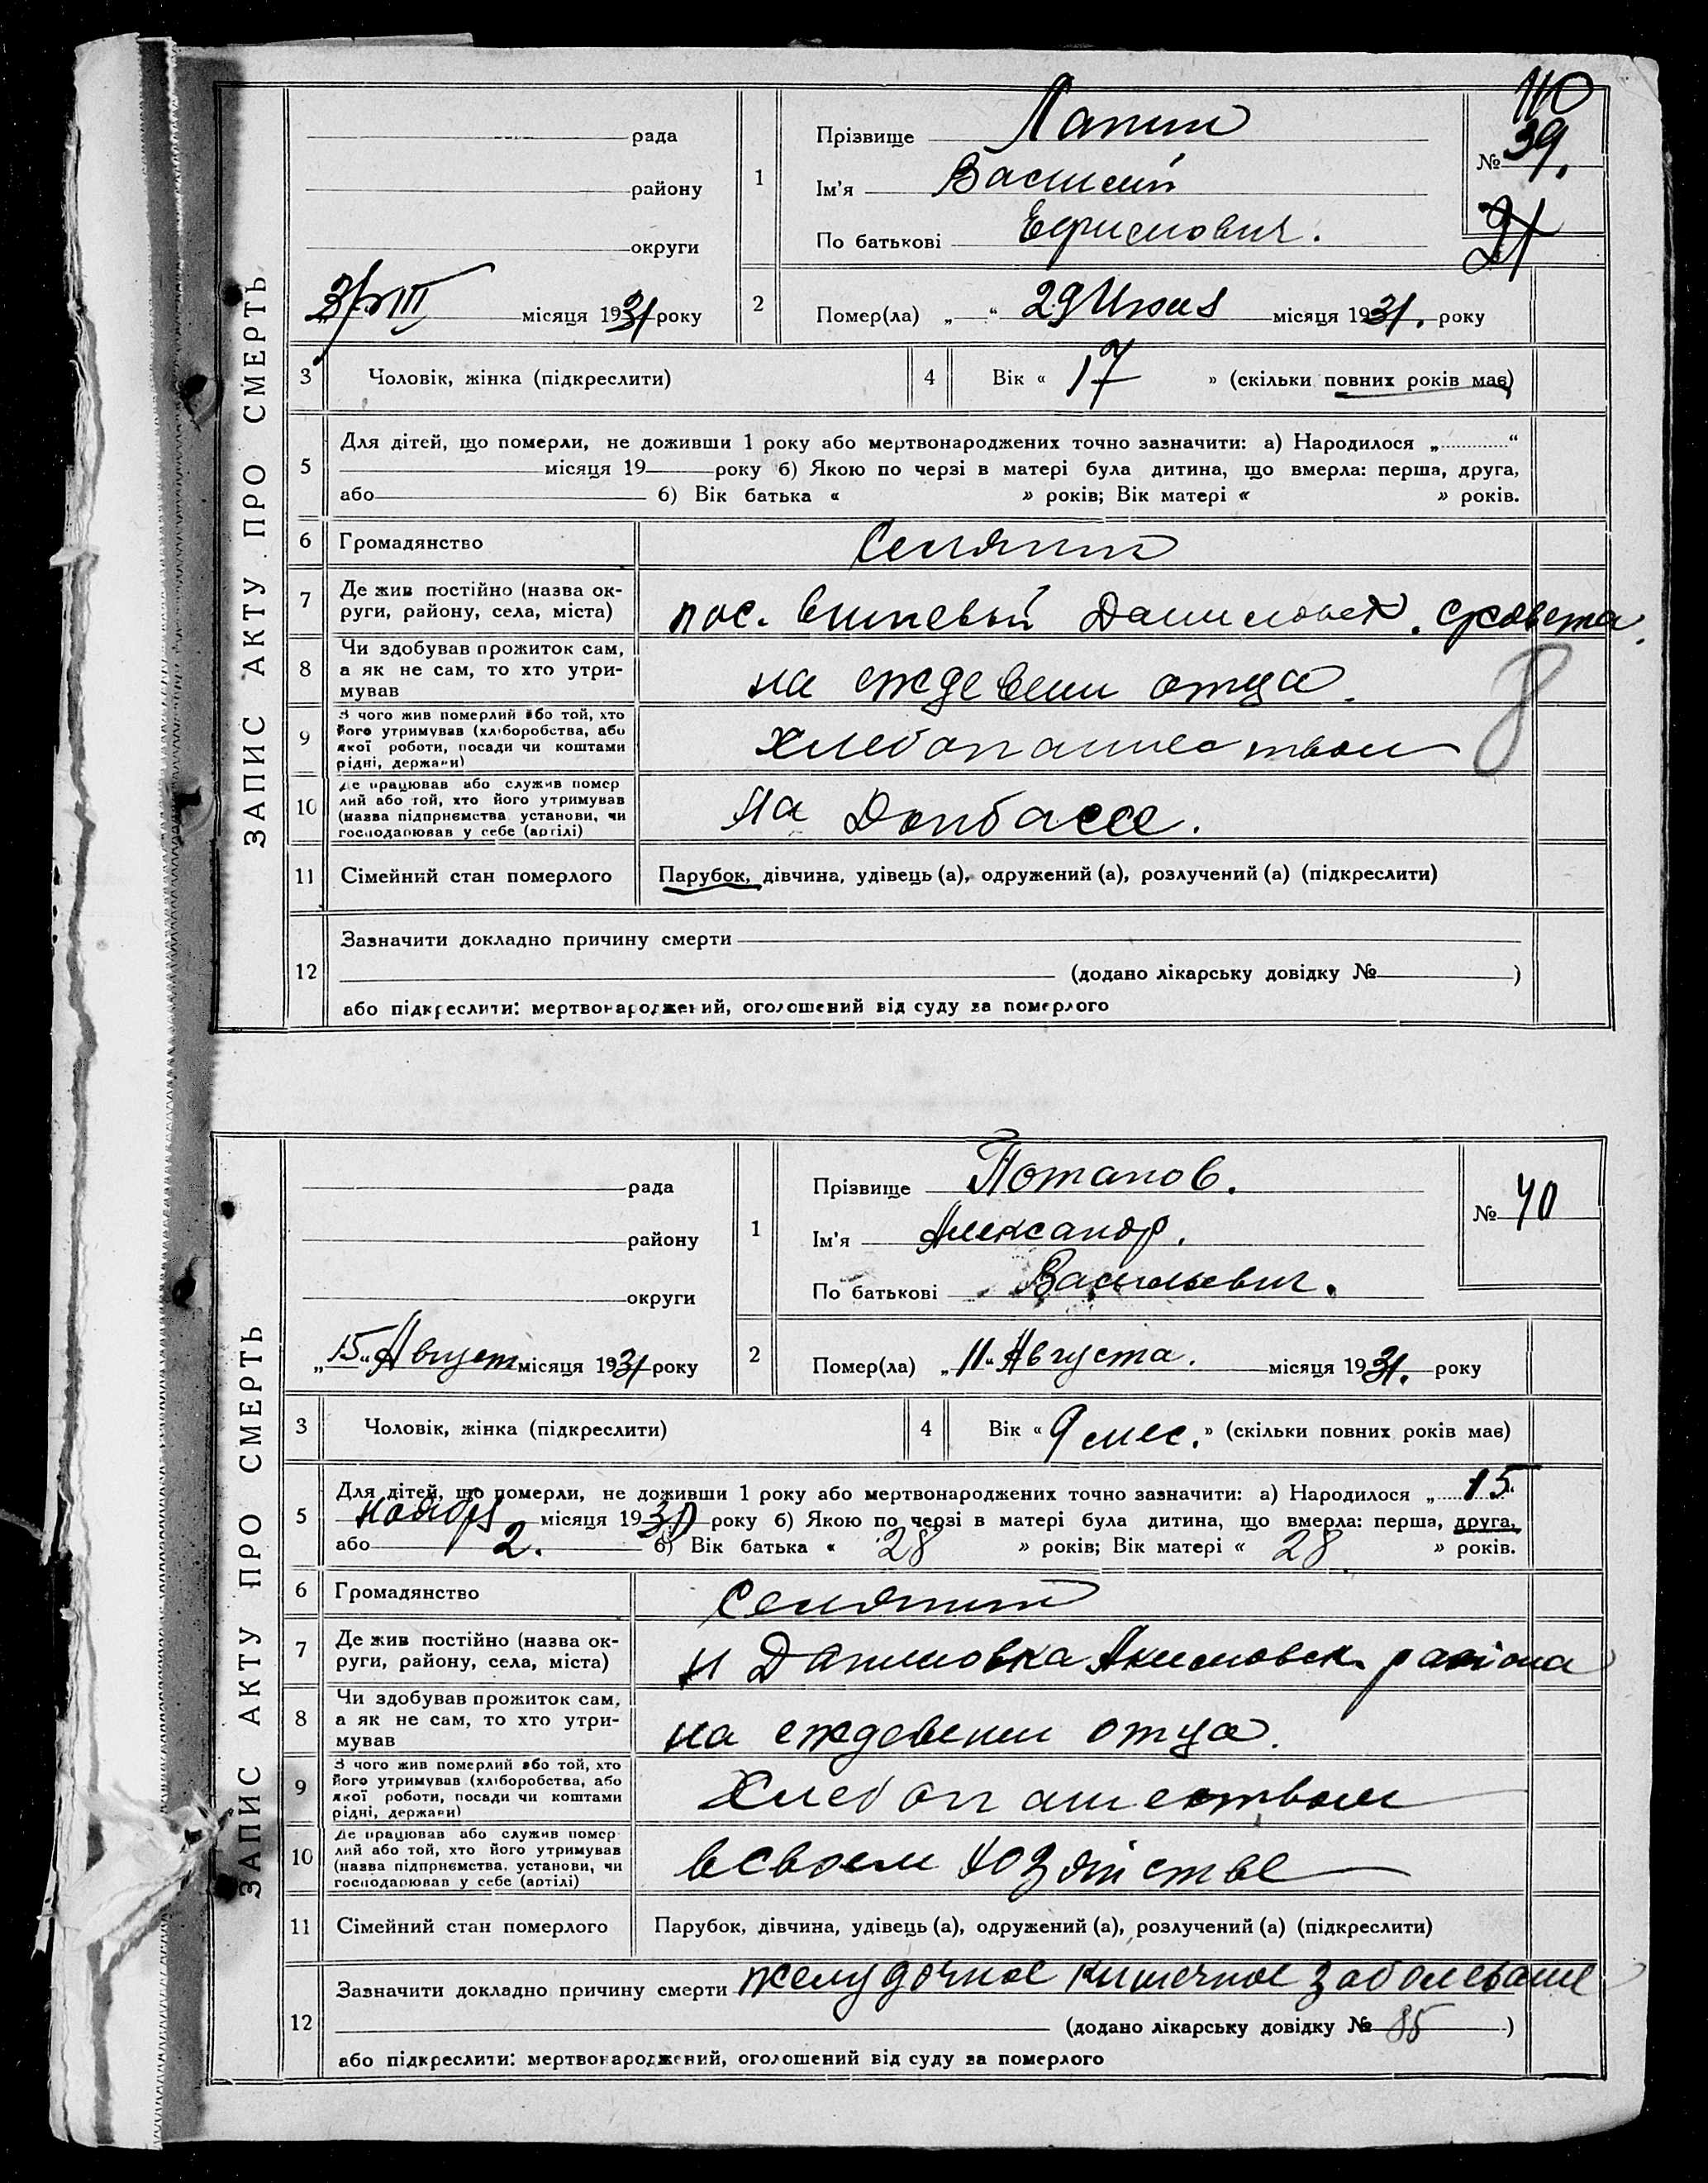 110
ЗАПИС АКТУ ПРО СМЕРТЬ
рада
району
округи
3/VIII місяця 1931 року
1
Прізвище Лапин
Ім'я Василий
По батькові Ефимович.
№ 39.
21
2 Помер(ла) „ “ 29 Июля місяця 1931. року
3 Чоловік, жінка (підкреслити)
4 Вік « 17 » (скільки повних років має)
5 Для дітей, що померли, не доживши 1 року або мертвонароджених точно зазначити: а) Народилося „ “
місяця 19 року б) Якою по черзі в матері була дитина, що вмерла: перша, друга,
або б) Вік батька « » років; Вік матері « » років.
6 Громадянство Селянин
7 Де жив постійно (назва ок-
руги, району, села, міста)
пос. Даниловск. с/совета.
8 Чи здобував прожиток сам,
а як не сам, то хто утри-
мував
на еждевени отца.
8
9 З чого жив померлий або той, хто
його утримував (хліборобства, або
якої роботи, посади чи коштами
рідні, держави)
Хлебопашеством
10 Де працював або служив помер
лий або той, хто його утримував
(назва підприємства установи, чи
господарював у себе (артілі)
На Донбассе.
11 Сімейний стан померлого Парубок, дівчина, удівець (а), одружений (а), розлучений (а) (підкреслити)
12 Зазначити докладно причину смерти
(додано лікарську довідку № )
або підкреслити: мертвонароджений, оголошений від суду за померлого
ЗАПИС АКТУ ПРО СМЕРТЬ
рада
району
округи
„15“ Август місяця 1931 року
1
Прізвище Потапов.
Ім'я Александр.
По батькові Васильевич.
№ 40
2 Помер(ла) „11“ Августа. місяця 1931. року
3 Чоловік, жінка (підкреслити)
4 Вік « 9 мес. » (скільки повних років має)
5 Для дітей, що померли, не доживши 1 року або мертвонароджених точно зазначити: а) Народилося „ 15 “
ноября місяця 1930 року б) Якою по черзі в матері була дитина, що вмерла: перша, друга,
або 2. б) Вік батька « 28 » років; Вік матері « 28 » років.
6 Громадянство Селянин
7 Де жив постійно (назва ок-
руги, району, села, міста)
Даниловка Акимовск. района
8 Чи здобував прожиток сам,
а як не сам, то хто утри-
мував
на еждевении отца.
9 З чого жив померлий або той, хто
його утримував (хліборобства, або
якої роботи, посади чи коштами
рідні, держави)
Хлебопашеством
10 Де працював або служив помер
лий або той, хто його утримував
(назва підприємства, установи, чи
господарював у себе (артілі)
в своем хозяйстве
11 Сімейний стан померлого Парубок, дівчина, удівець (а), одружений (а), розлучений (а) (підкреслити)
12 Зазначити докладно причину смерти желудочное кишечное заболевание
(додано лікарську довідку № 85 )
або підкреслити: мертвонароджений, оголошений від суду за померлого